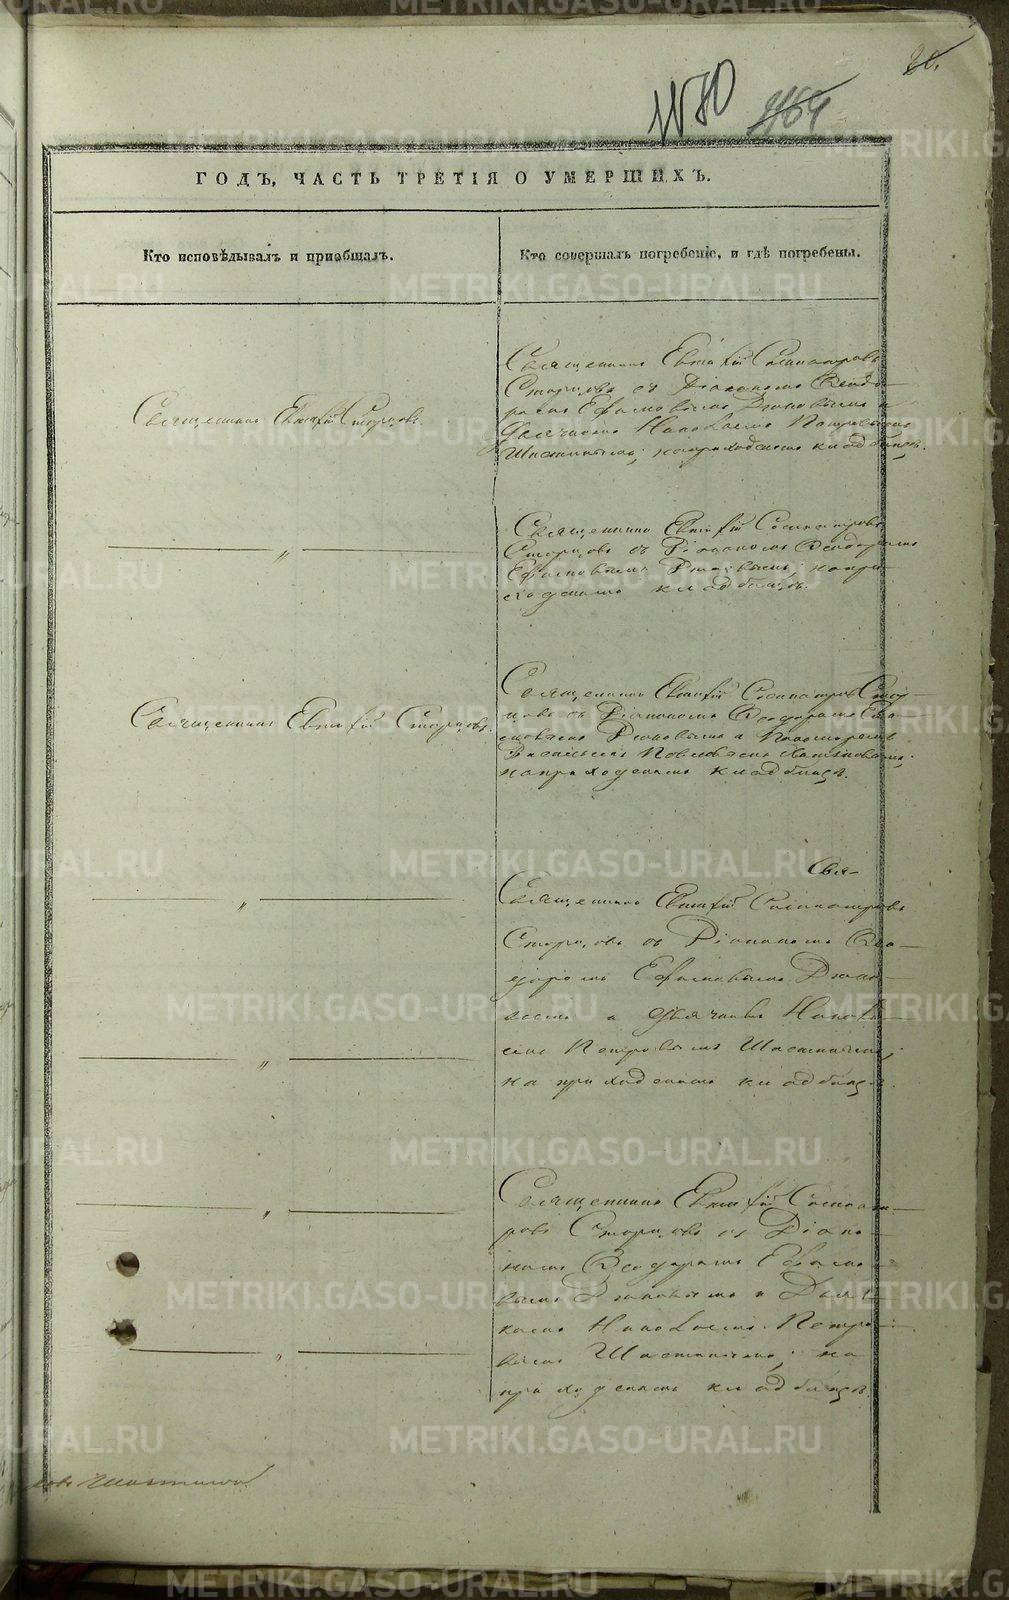 30.
1180 1164
ГОДЪ, ЧАСТЬ ТРЕТІЯ О УМЕРШИХЪ.
Кто исповѣдывалъ и пріобщалъ.
Кто совершалъ погребеніе, и гдѣ погребены.
Священникъ Евтихій Сторцовъ.
Священникъ Евтихій Сосипатровъ
Сторцовъ съ Діакономъ Ѳеодо-
ромъ Ефимовымъ и
Дьячкомъ Николаемъ Петровымъ
Шастинымъ; на приходскомъ кладбищѣ.
„
Священникъ Евтихій Сосипатровъ
Сторцовъ съ Діакономъ Ѳеодоромъ
Ефимовымъ на при-
ходскомъ кладбищѣ.
Священникъ Евтихій Сторцовъ.
Священникъ Евтихій Сосипатровъ Стор-
цовъ съ Діакономъ Ѳеодоромъ Ефи-
мовымъ и Пономаремъ
Василіемъ Павловымъ
на приходскомъ кладбищѣ.
Свя-
„
Священникъ Евтихій Сосипатровъ
Сторцовъ съ Діакономъ Ѳео-
доромъ Ефимовымъ
и Дьячкомъ Никола-
емъ Петровымъ Шастинымъ;
на приходскомъ кладбищѣ.
„
„
Священникъ Евтихій Сосипат-
ровъ Сторцовъ съ Діако-
номъ Ѳеодоромъ Ефимо-
вымъ и Дьяч-
комъ Николаемъ Петро-
вымъ Шастинымъ; на
приходскомъ кладбищѣ.
„
Шастинъ
METRIKI.GASO-URAL.RU